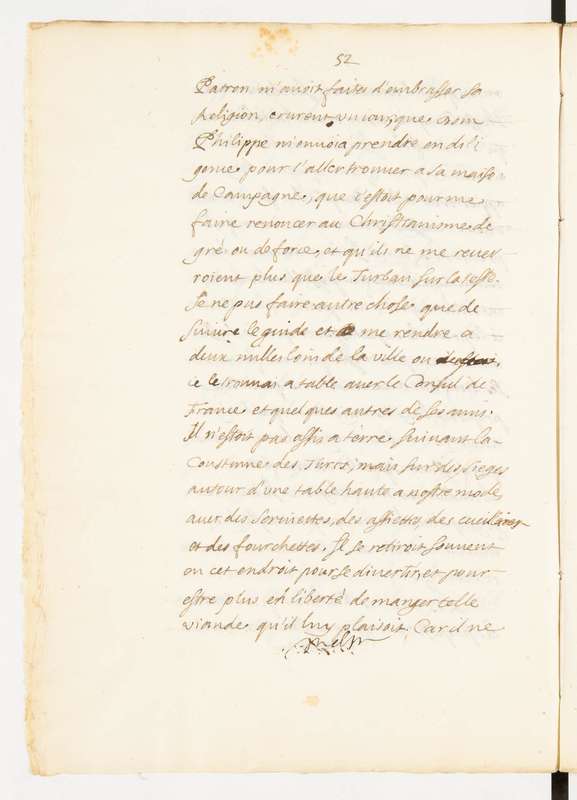 52
Patron m'avoit faites d'embrasser sa
Religion, crurent, voiant, que Dom
Philippe m'envoia prendre en dili
gence pour l'aller trouver a sa maison
de Campagne, que c'estoit pour me
faire renoncer au Christianisme de
gré ou de force, et qu'ils ne me rever
roient plus que le Turban sur la teste.
Je ne pus faire autre chose que de
suivre le guide et me rendre a
deux milles loin de la ville ou
je le trouvai a table avec le Consul de
France et quelques autres de ses amis.
Il n'estoit pas assis a terre suivant la
Coustume des Turcs, mais sur des sieges
autour d'une table haute a nostre mode,
avec des serviettes, des assiettes, des cueilleres
et des fourchettes. Il se retiroit souvent
en cet endroit pour se divertir, et pour
estre plus en liberté de manger telle
viande qu'il luy plaisoit, Car il ne